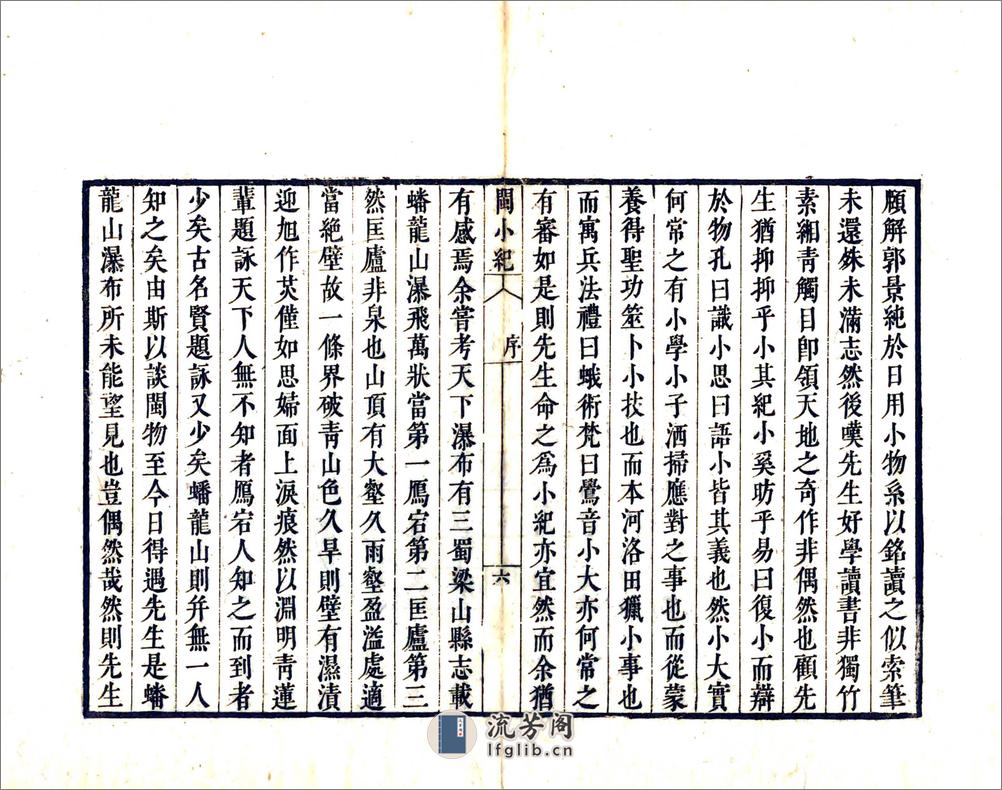 頋解郭景純於日用小物系以銘讀之似索筆
未還殊未滿志然後嘆先生好學讀書非獨竹
素緗青觸目卽領天地之奇作非偶然也顧先
生猶抑抑乎小其紀小奚昉乎易曰復小而辯
於物孔曰識小思曰語小皆其義也然小大實
何常之有小學小子洒掃應對之事也而從蒙
養得聖功筮卜小技也而本河洛田獵小事也
而寓兵法禮曰蛾術梵曰鶯音小大亦何常之
有審如是則先生命之爲小紀亦宜然而余猶
閩小紀 序 六
有感焉余嘗考天下瀑布有三蜀梁山縣志載
蟠龍山瀑飛萬狀當第一鴈宕第二匡廬第三
然匡廬非泉也山頂有大壑久雨壑盈溢處適
當絶壁故一條界破青山色久旱則壁有濕漬
迎旭作英僅如思婦面上淚痕然以淵明青蓮
輩題詠天下人無不知者鴈宕人知之而到者
少矣古名賢題詠又少矣蟠龍山則幷無一人
知之矣由斯以談閩物至今日得遇先生是蟠
龍山瀑布所未能望見也豈偶然哉然則先生
流芳阁
lfglib.cn